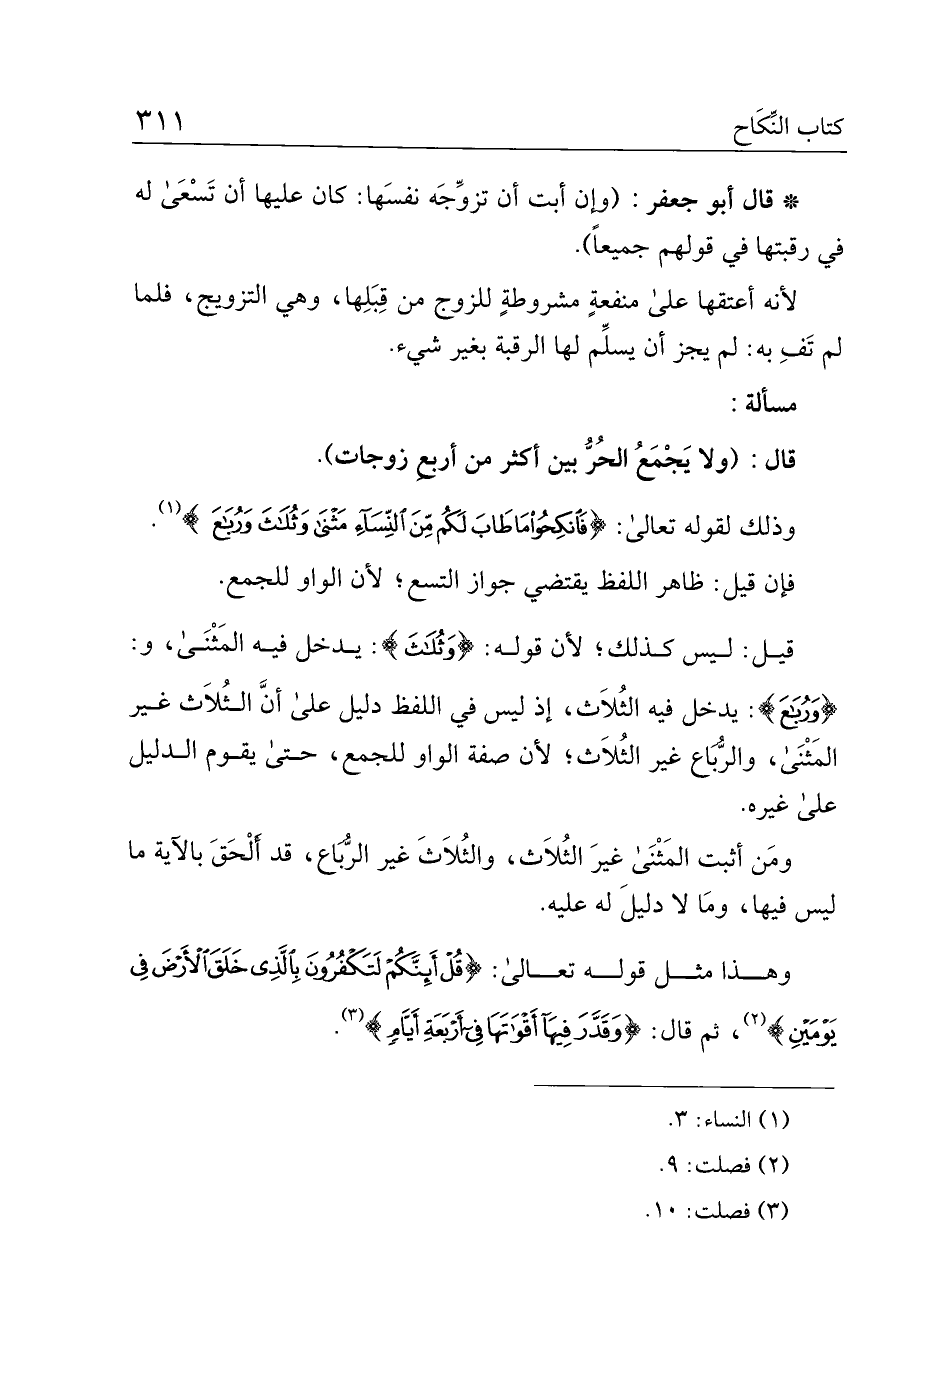 كتاب النِّكَاح
٣١١
* قال أبو جعفر : (وإن أبت أن تزوِّجَه نفسَها: كان عليها أن تَسْعَىٰ له
في رقبتها في قولهم جميعاً).
لأنه أعتقها علىٰ منفعةٍ مشروطةٍ للزوج من قِبَلِها، وهي التزويج، فلما
لم تَفِ به: لم يجز أن يسلِّم لها الرقبة بغير شيء.
مسألة :
قال : (ولا يَجْمَعُ الحُرُّ بين أكثر من أربعِ زوجات).
وذلك لقوله تعالىٰ: ﴿فَٱنكِحُوا۟ مَا طَابَ لَكُم مِّنَ ٱلنِّسَآءِ مَثْنَىٰ وَثُلَـٰثَ وَرُبَـٰعَ﴾(١).
فإن قيل: ظاهر اللفظ يقتضي جواز التسع؛ لأن الواو للجمع.
قيل: ليس كذلك؛ لأن قوله: ﴿وَثُلَـٰثَ﴾: يدخل فيه المَثْنَىٰ، و:
﴿وَرُبَـٰعَ﴾: يدخل فيه الثُلاَث، إذ ليس في اللفظ دليل علىٰ أنَّ الثُلاَث غير
المَثْنَىٰ، والرُّبَاع غير الثُلاَث؛ لأن صفة الواو للجمع، حتىٰ يقوم الدليل
علىٰ غيره.
ومَن أثبت المَثْنَىٰ غيرَ الثُلاَث، والثُلاَثَ غير الرُّبَاع، قد أَلْحَقَ بالآية ما
ليس فيها، ومَا لا دليلَ له عليه.
وهذا مثل قوله تعالىٰ: ﴿قُلْ أَئِنَّكُمْ لَتَكْفُرُونَ بِٱلَّذِى خَلَقَ ٱلْأَرْضَ فِى
يَوْمَيْنِ﴾(٢)، ثم قال: ﴿وَقَدَّرَ فِيهَآ أَقْوَٰتَهَا فِىٓ أَرْبَعَةِ أَيَّامٍ﴾(٣).
(١) النساء: ٣.
(٢) فصلت: ٩.
(٣) فصلت: ١٠.